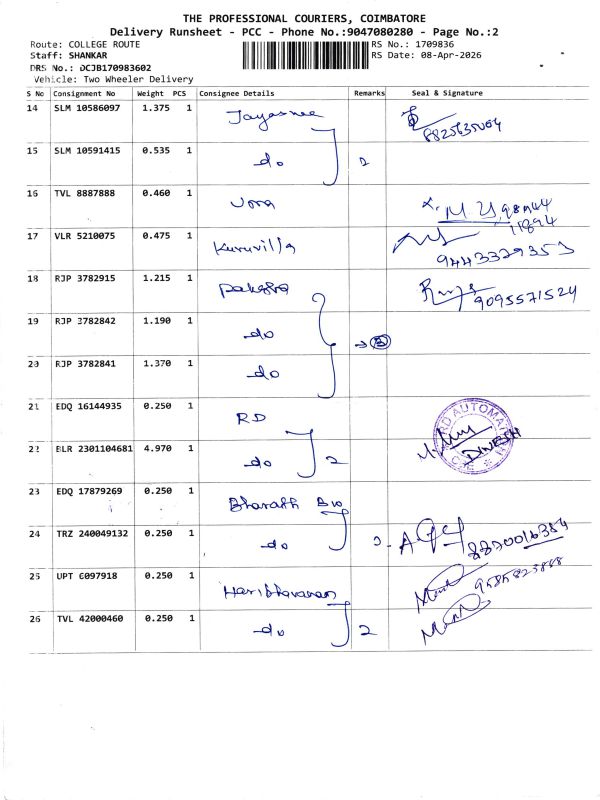 THE PROFESSIONAL COURIERS, COIMBATORE
Delivery Runsheet - PCC - Phone No.:9047080280 - Page No.:2
Route: COLLEGE ROUTE RS No.: 1709836
Staff: SHANKAR RS Date: 08-Apr-2026
DRS No.: DCJB170983602
Vehicle: Two Wheeler Delivery
S No Consignment No Weight PCS Consignee Details Remarks Seal & Signature
14 SLM 10586097 1.375 1 Jayashree
15 SLM 10591415 0.535 1 do 2
16 TVL 8887888 0.460 1
17 VLR 5210075 0.475 1 Kuruvilla 9443329353
18 RJP 3782915 1.215 1 9095571524
19 RJP 3782842 1.190 1 do 3
20 RJP 3782841 1.370 1 do
21 EDQ 16144935 0.250 1 RD
22 BLR 2301104681 4.970 1 do 2 DINESH
23 EDQ 17879269 0.250 1 Bharath Bio
24 TRZ 240049132 0.250 1 do 2 8870016354
25 UPT 6097918 0.250 1 Haribhavanam 9585823888
26 TVL 42000460 0.250 1 do 2